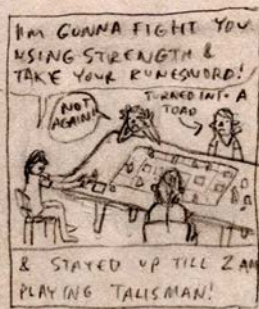 I'M GUNNA FIGHT YOU
USING STRENGTH &
TAKE YOUR RUNESWORD!
NOT
AGAIN!
TURNED INTO A
TOAD
& STAYED UP TILL 2 AM
PLAYING TALISMAN!